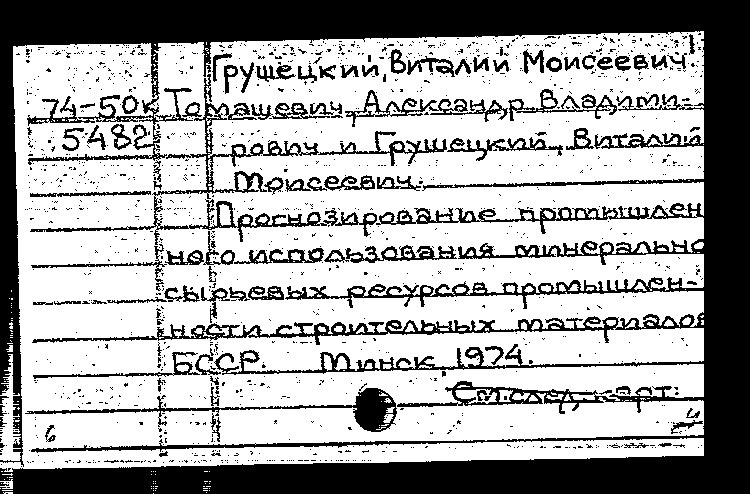 Грушецкий, Виталий Моисеевич.
74-50к Томашевич, Александр Владими-
5482 рович и Грушецкий, Виталий
Моисеевич.
Прогнозирование промышлен
ного использования минерально
сырьевых ресурсов промышлен-
ности строительных материалов
БССР. Минск, 1974.
См. след. карт.
6 4